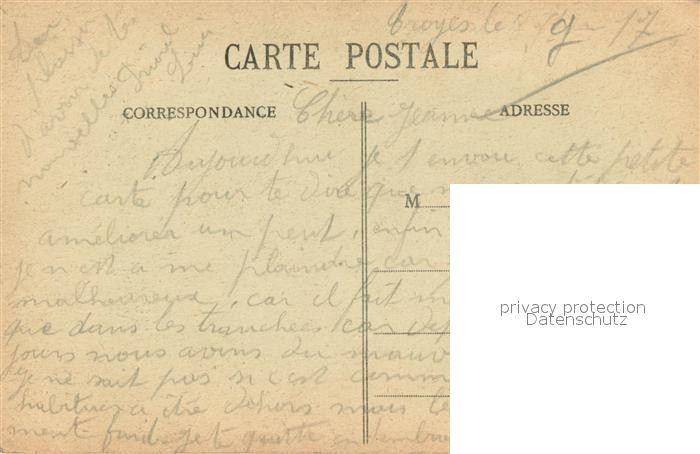 Troyes le 9 - 17
CARTE POSTALE
CORRESPONDANCE
ADRESSE
Chère Jeanne
Aujourd'hui je t envoie cette petite
carte pour te dire que
améliorer un peut, enfin
je n est a me plaindre car
malheureux, car il fait
que dans les tranchées car dep
jours nous avons du mauv
je ne sait pas si c'est comm
habituer a être dehors mais le
ment froid. je te quitte en
M
plaisir
d'avoir de tes
nouvelles
privacy protection
Datenschutz